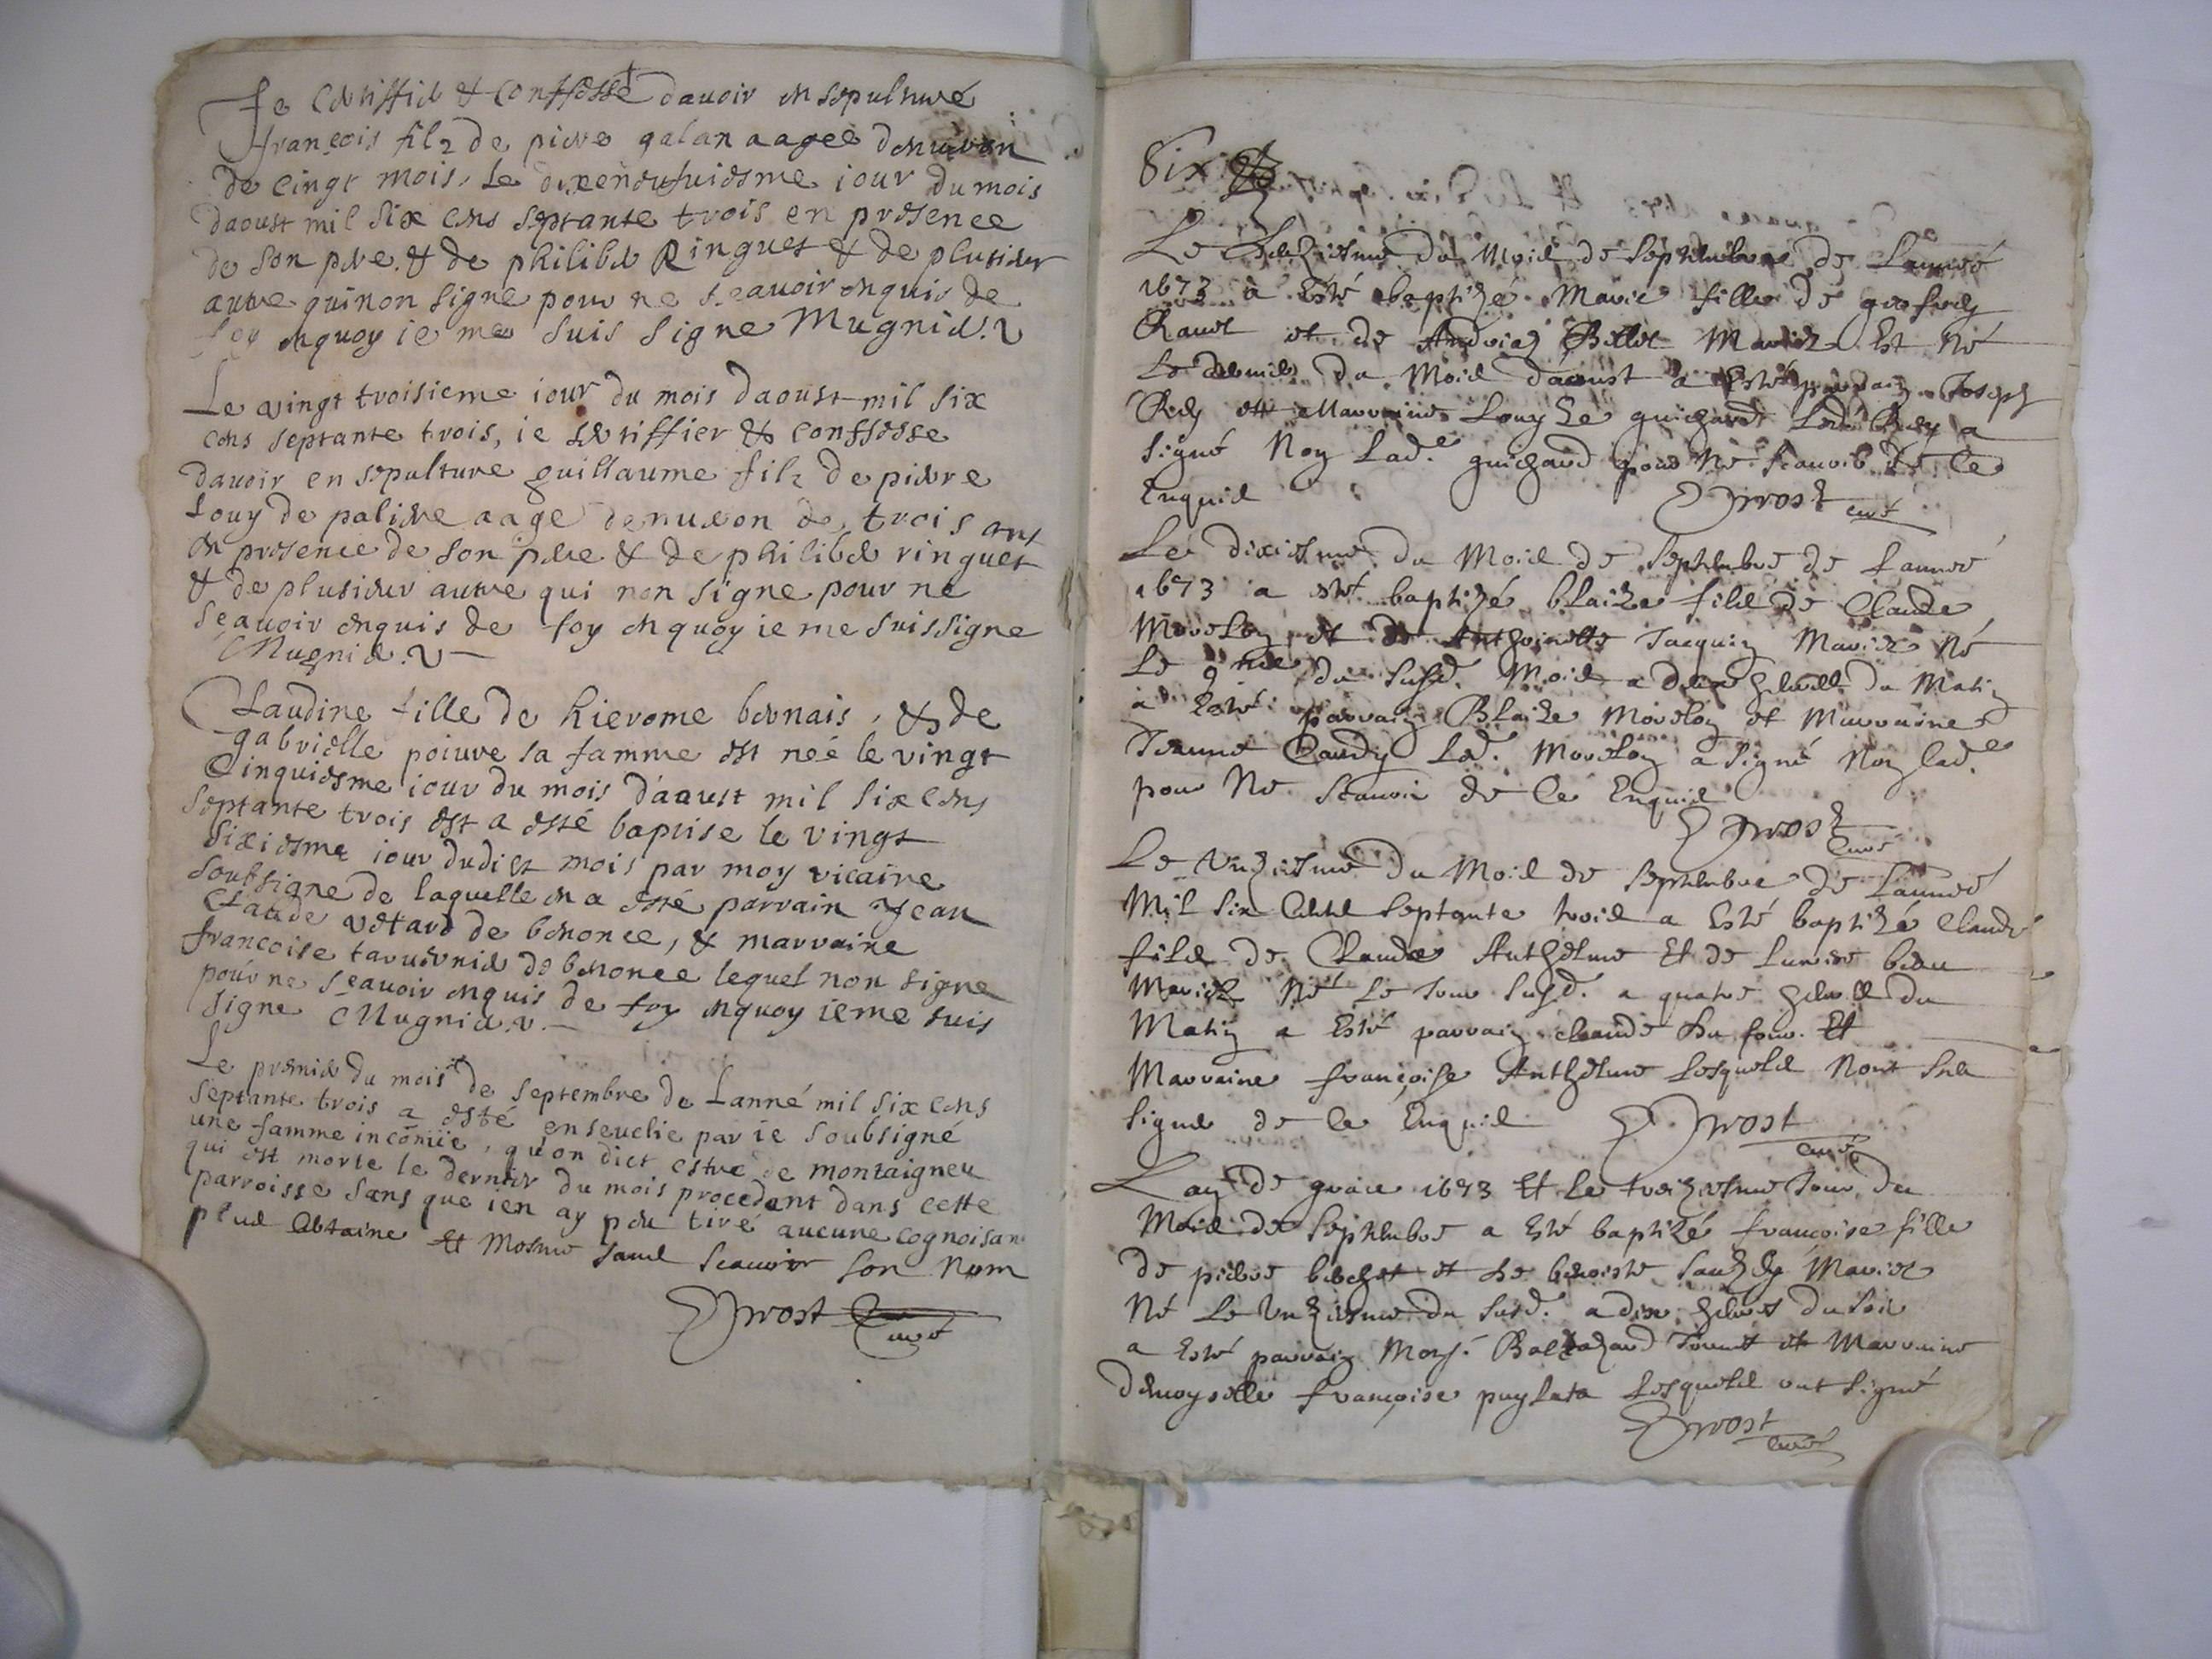 Je certiffie & conffesse davoir en sepulture
françois filz de pierre galan aagee denviron
de cinqt mois, le jour du mois
daoust mil six cens septante trois en presence
de son pere & de philiber Ringuet & de plusieur
autre qui non signe pour ne scavoir enquis de
foy enquoy ie me suis signe Mugnier. v
Le vingt troisieme iour du mois daoust mil six
cens septante trois, ie certiffier & conffesse
davoir en sepulture guillaume filz de pierre
Louy de paliere aagé denviron de trois ans
en presence de son pere & de philiber ringuet
& de plusieur autre qui non signe pour ne
scavoir enquis de foy enquoy ie me suis signe
Mugnier. v
Claudine fille de hierome bernais, & de
gabrielle poivre sa famme est neé le vingt
cinquiesme iour du mois daaust mil six cens
septante trois est a esté baptise le vingt
sixiesme iour dudict mois par moy vicaire
soubsigne de laquelle en a esté parrain Jean
Claude vetard de benonce, & marraine
francoise tavernier de benonce lequel non signe
pour ne scavoir enquis de foy enquoy ie me suis
signe Mugnier. v.
Le premier du mois de septembre de Lanné mil six cens
septante trois a esté ensevelie par ie soubsigné
une famme incōnue, qu'on dict estre de montaigneu
qui est morte le dernier du mois precedent dans cette
parroisse sans que ien ay peu tiré aucune cognoisan
plus certaine Et mesme sans scavoir son nom
Prost Curé
Six
Le du Mois de Septembre de Lannée
1673 a esté baptizé Marie fille de
et de Mariez Est né
Le dernier du Mois daoust a esté parrain Joseph
et Marraine Louyse guichard Led. a
signé Non Lad.e guichard pour ne scavoir de ce
Enquis Prost curé
Le dixiesme du Mois de Septembre de Lannée
1673 a esté baptizé blaize fils de Claude
Morelon et de Anthoinette Jacquin Mariez né
Le 9 du susd. Mois a deux heures du Matin
a esté parrain Blaize Morelon et Marraine
Jeanne Led. Morelon a signé Non lad.e
pour ne scavoir de ce Enquis
Prost Curé
Le unziesme du Mois de Septembre de Lannée
Mil six cents septante trois a esté baptizé Claude
fils de Claude Anthelme Et de
Mariez né Le jour susd. a quatre heures du
Matin a esté parrain claude du four Et
Marraine françoise Anthelme lesquels nont sceu
signer de ce Enquis Prost curé
Lan de grace 1673 Et le treiziesme jour du
Mois de Septembre a esté baptizé françoise fille
de pierre et de benoiste Mariez
né Le unziesme du susd. a dix heures du soir
a esté parrain Mons. Baltazard et Marraine
demoyselle françoise lesquels ont signé
Prost curé